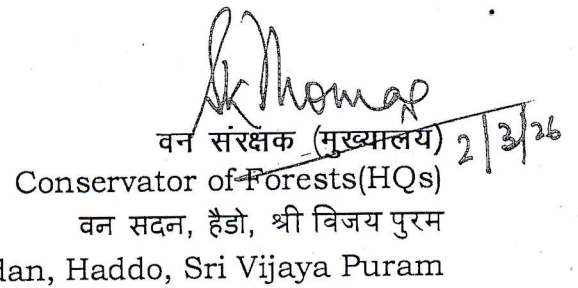 SK Thomas
वन संरक्षक (मुख्यालय) 2/3/26
Conservator of Forests(HQs)
वन सदन, हैडो, श्री विजय पुरम
dan, Haddo, Sri Vijaya Puram